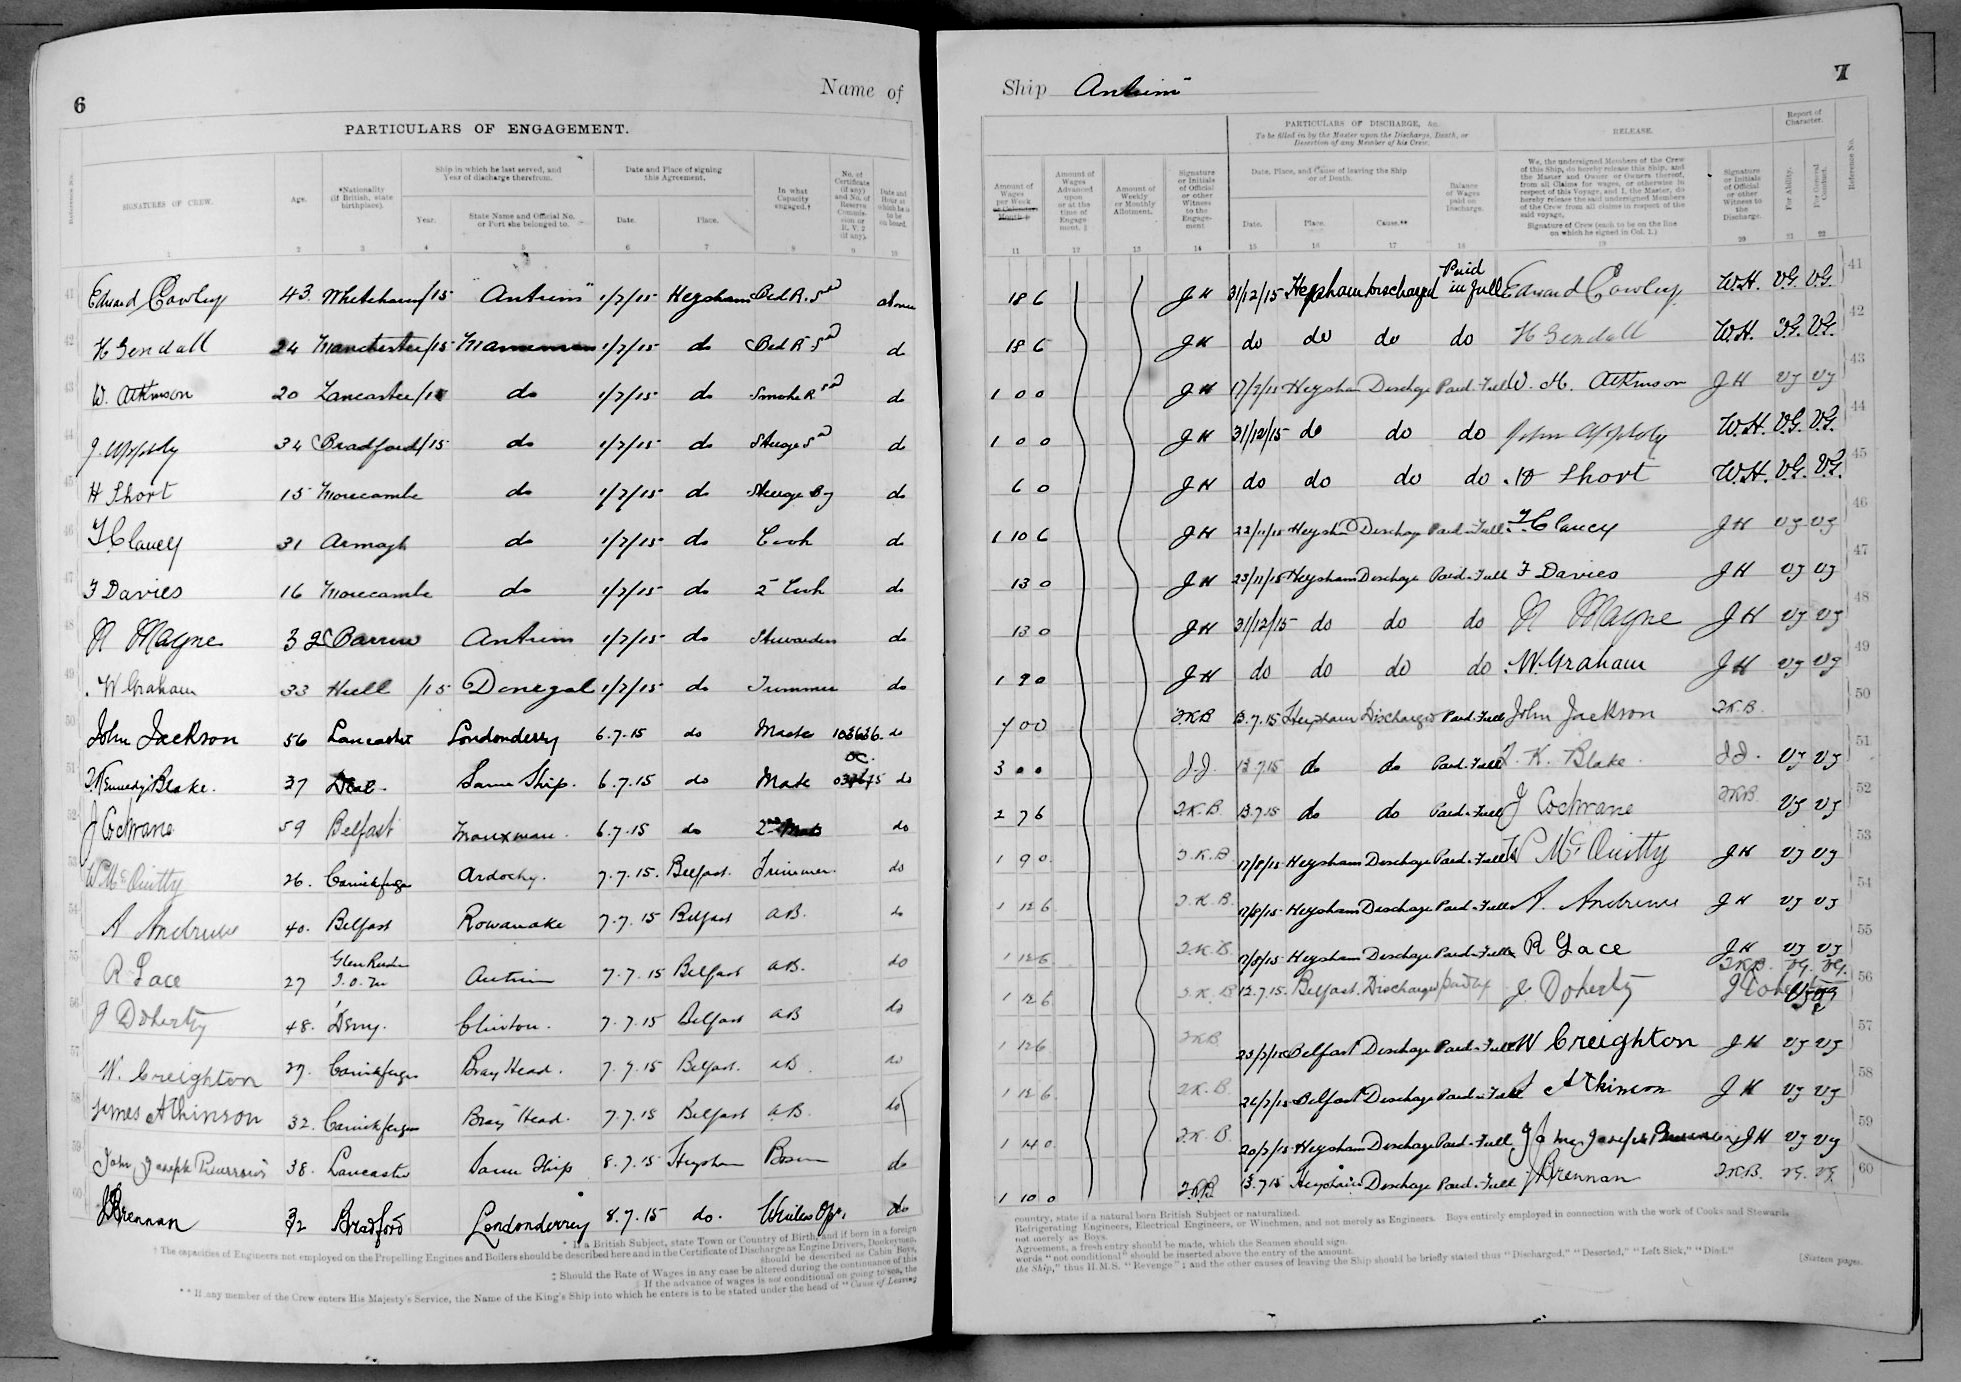 6
Name of
PARTICULARS OF ENGAGEMENT.
Reference No.
SIGNATURES OF CREW.
Age.
*Nationality (if British, state birthplace).
Ship in which he last served, and Year of discharge therefrom.
Year.
State Name and Official No. or Port she belonged to.
Date and Place of signing this Agreement.
Date.
Place.
In what Capacity engaged.†
No. of Certificate (if any) and No. of Reserve Commission or R. V. 2 (if any).
Date and Hour at which he is to be on board.
1 2 3 4 5 6 7 8 9 10
41 Edward Cowley 43 Whitehaven /15 "Antrim" 1/7/15 Heysham Bed R. Sd above
42 H Gendall 24 Manchester /15 Manxman 1/7/15 do Bed R Sd do
43 W. Atkinson 20 Lancaster do 1/7/15 do Smoke R Sd do
44 J. Appleby 34 Bradford /15 do 1/7/15 do Steerge Sd do
45 H Short 15 Morecambe do 1/7/15 do Steerge Boy do
46 T. Clancy 31 Armagh do 1/7/15 do Cook do
47 F Davies 16 Morecambe do 1/7/15 do 2 Cook do
48 N Mayne 32 Barrow Antrim 1/7/15 do Stewardess do
49 W Graham 33 Hull /15 Donegal 1/7/15 do Trimmer do
50 John Jackson 56 Lancaster Londonderry 6.7.15 do Master 103636 do
51 T. Kennedy Blake. 37 Deal. Same Ship. 6.7.15 do Mate do
52 J Cochrane 59 Belfast Manxman. 6.7.15 do 2nd Mate do
53 W McQuitty 26. Carrickfergus Ardochy. 7.7.15. Belfast. Trimmer. do
54 A Andrews 40. Belfast Rowanoake 7.7.15 Belfast A.B. do
55 R Lace 27 Glen Rushen I.O.M Antrim 7.7.15 Belfast A.B. do
56 J Doherty 48. Derry. Clinton. 7.7.15 Belfast AB do
57 W. Creighton 29. Carrickfergus Bray Head. 7.7.15 Belfast. AB do
58 James Atkinson 32. Carrickfergus Bray Head. 7.7.15 Belfast A.B. do
59 John Joseph 38. Lancaster Same Ship 8.7.15 Heysham Bosun do
60 J Brennan 32 Bradford Londonderry 8.7.15 do. Wireless Opr. do
* If a British Subject, state Town or Country of Birth, and if born in a foreign
† The capacities of Engineers not employed on the Propelling Engines and Boilers should be described here and in the Certificate of Discharge as Engine Drivers, Donkeymen,
should be described as Cabin Boys,
‡ Should the Rate of Wages in any case be altered during the continuance of this
If the advance of wages is not conditional on going to sea, the
** If any member of the Crew enters His Majesty's Service, the Name of the King's Ship into which he enters is to be stated under the head of "Cause of Leaving
Ship Antrim
7
Amount of Wages per Week or Calendar Month
Amount of Wages Advanced upon or at the time of Engagement.
Amount of Weekly or Monthly Allotment.
Signature or Initials of Official or other Witness to the Engagement
PARTICULARS OF DISCHARGE, &c.
To be filled in by the Master upon the Discharge, Death, or Desertion of any Member of his Crew.
Date, Place, and Cause of leaving the Ship or of Death.
Date.
Place.
Cause.**
Balance of Wages paid on Discharge.
RELEASE.
We, the undersigned Members of the Crew of this Ship, do hereby release this Ship, and the Master and Owner or Owners thereof, from all Claims for wages, or otherwise in respect of this Voyage, and I, the Master, do hereby release the said undersigned Members of the Crew from all claims in respect of the said voyage.
Signature of Crew (each to be on the line on which he signed in Col. 1.)
Signature or Initials of Official or other Witness to the Discharge.
Report of Character.
For Ability.
For General Conduct.
Reference No.
11 12 13 14 15 16 17 18 19 20 21 22
18 6 JH 31/12/15 Heysham Discharged Paid in full Edward Cowley W.H. V.G. V.G. 41
18 6 JH do do do do H Gendall W.H. V.G. V.G. 42
1 0 0 JH Heysham Discharge Paid Full W. H. Atkinson JH VG VG 43
1 0 0 JH 31/12/15 do do do John Appleby W.H. V.G. V.G. 44
6 0 JH do do do do H Short W.H. V.G. V.G. 45
1 10 6 JH 23/11/15 Heysham Discharge Paid Full T. Clancy JH VG VG 46
13 0 JH 23/11/15 Heysham Discharge Paid Full F Davies JH VG VG 47
13 0 JH 31/12/15 do do do N Mayne JH VG VG 48
1 9 0 JH do do do do W. Graham JH VG VG 49
7 0 0 T.K.B 13.7.15 Heysham Discharged Paid Full John Jackson T.K.B. 50
3 0 0 J.J. 13.7.15 do do Paid Full T. K. Blake. J.J. VG VG 51
2 7 6 T.K.B. 13.7.15 do do Paid Full J Cochrane T.K.B. VG VG 52
1 9 0 T.K.B 17/8/15 Heysham Discharge Paid Full W McQuitty JH VG VG 53
1 12 6 T.K.B. 17/8/15 Heysham Discharge Paid Full A. Andrews JH VG VG 54
1 12 6 T.K.B. Heysham Discharge Paid Full R Lace JH VG VG 55
1 12 6 T.K.B 12.7.15. Belfast. Discharged J. Doherty T.K.B. VG. VG. 56
1 12 6 T.K.B 23/7/15 Belfast Discharge Paid Full W Creighton JH VG VG 57
1 12 6 T.K.B. 26/7/15 Belfast Discharge Paid Full J Atkinson JH VG VG 58
1 14 0 T.K.B. 20/7/15 Heysham Discharge Paid Full John Joseph JH VG VG 59
1 10 0 T.K.B. 13.7.15 Heysham Discharge Paid Full J Brennan T.K.B. VG. VG. 60
country, state if a natural born British Subject or naturalized.
Refrigerating Engineers, Electrical Engineers, or Winchmen, and not merely as Engineers. Boys entirely employed in connection with the work of Cooks and Stewards
not merely as Boys.
Agreement, a fresh entry should be made, which the Seamen should sign.
words "not conditional" should be inserted above the entry of the amount.
the Ship," thus H.M.S. "Revenge"; and the other causes of leaving the Ship should be briefly stated thus "Discharged," "Deserted," "Left Sick," "Died."
[Sixteen pages.